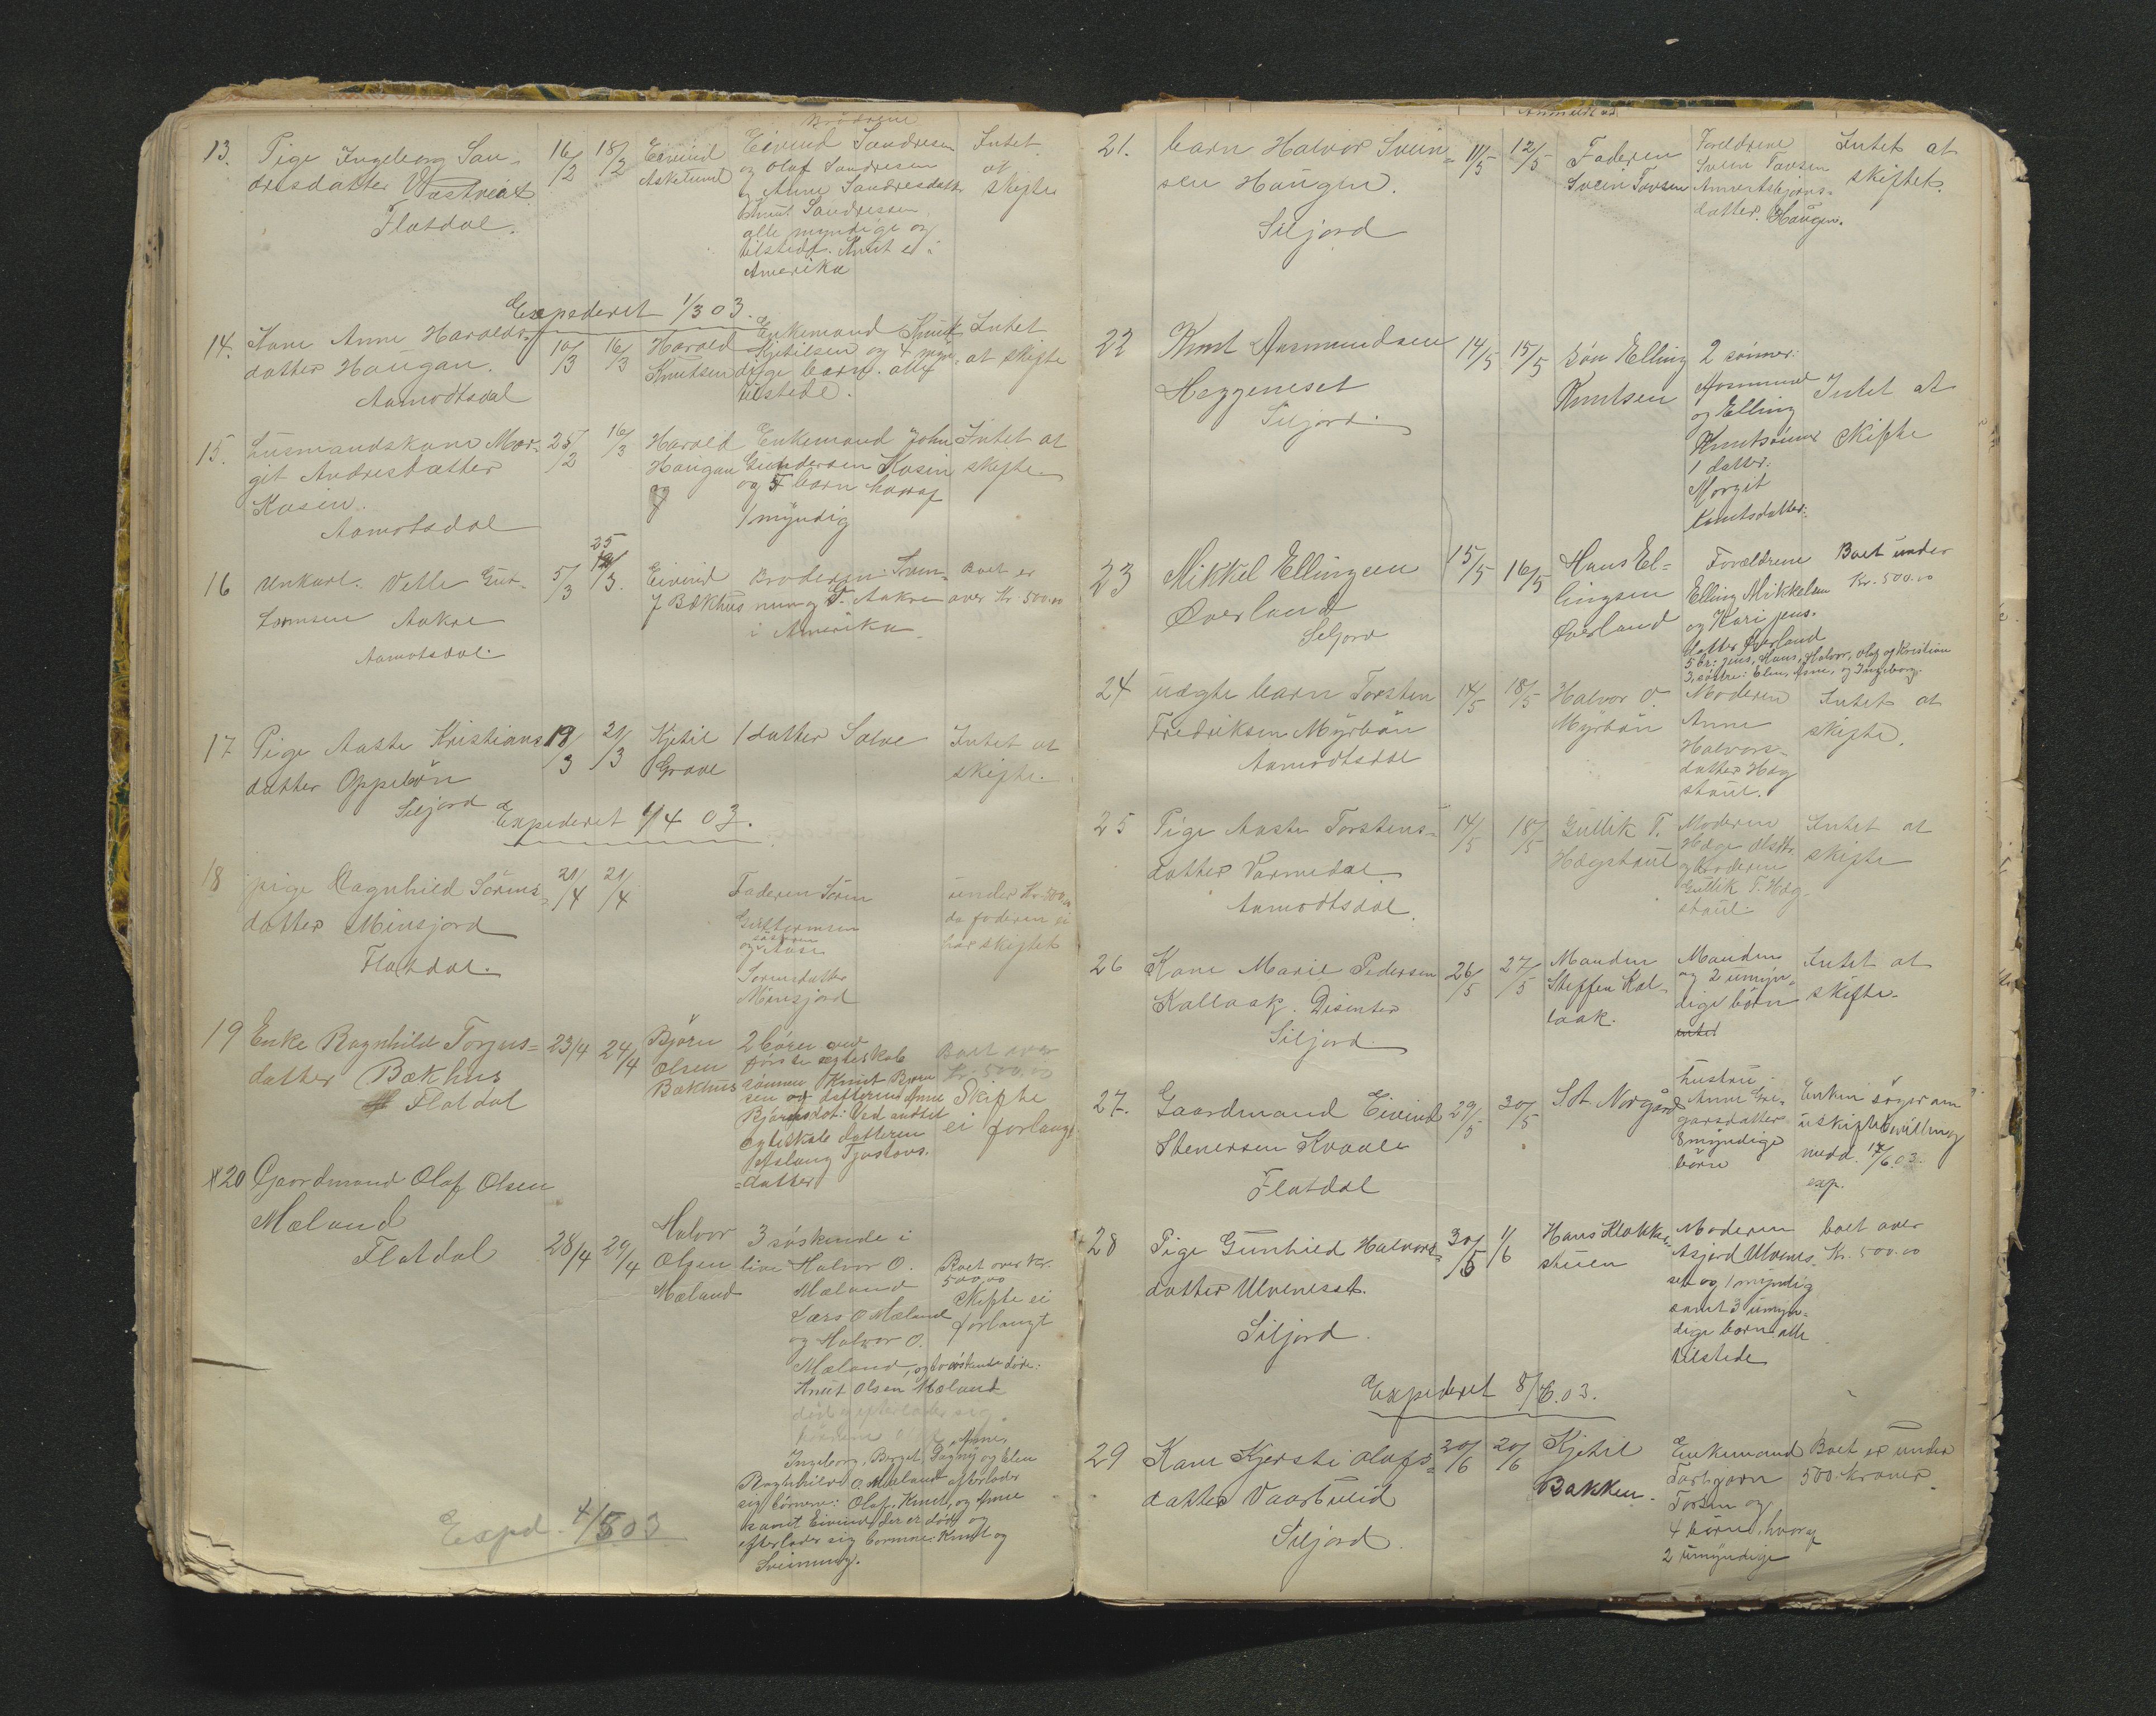 13. Pige Ingeborg San-
dresdatter Vastveit
Flatdal.
16/2
18/2
Eivind
Askelund
Brödrene
Eivind Sandresen
og Olaf Sandresen
og Anne Sandresdatt.
Knut Sandresen,
alle myndige og
tilstede. Knut er i
Amerika
Intet
at
skifte
Expederet 1/3 03.
14. Kone Anne Haralds-
datter Haugan.
Aamodtsdal
10/3
16/3
Harald
Knutsen
Enkemand Knut
Kjetilsen og 4 myn-
dige børn. alle
tilstede.
Intet
at skifte
15. Husmandskone Mar-
git Andresdatter
Kasin.
Aamotsdal
25/2
16/3
Harald
Haugan
Enkemand John
Gundersen Kasin
og 5 barn hvoraf
1 myndig
Intet at
skifte
16 Unkarl. Vetle Gut-
tormsen Aakre
Aamotsdal.
5/3
25
/3.
Eivind
J Bækhus
Broderen Svein-
nung G. Aakre
i Amerika
Boet er
over Kr. 500.00
17 Pige Aaste Kristians
datter Oppebøn
Siljord
19/3
21/3
Kjetil
Grave
1 datter Salve
Intet at
skifte.
Expederet 1/4 03.
18 pige Ragnhild Sörens-
datter Minsjord
Flatdal.
21/4
21/4
Faderen Sören
Guttormsen
søsteren
og Aase
Sorensdatter
Minsjord
under Kr. 500.00
da faderen ei
har skiftet
19 Enke Ragnhild Torjus-
datter Bækhus
Flatdal
23/4
24/4
Björn
Olsen
Bækhus
2 børn av
første ægteskab
sønnen Knut Bjørn
sen og datteren Anne
Bjørnsdat: Ved andet
ægteskab datteren
Aslaug Tjostovs.
datter
Boet over
Kr. 500.00
Skifte
ei forlangt
X 20 Gaardmand Olaf Olsen
Mæland
Flatdal
28/4
29/4
Halvor
Olsen
Mæland
3 søskende i
live Halvor O.
Mæland
Lars O Mæland
og Halvor O.
Mæland, og to søskende døde:
Knut Olsen Mæland
død og efterlader sig
børnene Anne,
Ingeborg, Birgit, Dagny og Elen
Ragnhild O. Mæland efterlader
sig børnene: Olaf, Knut, og Anne
samt Eivind der er død og
efterlader sig børnene: Knut og
Sveinung.
Boet over Kr.
500.00
Skifte ei
forlangt
Expd. 4/5 03
Anmeldt ad
21. barn Halvor Svein-
sen Haugen.
Siljord
11/5
12/5
Faderen
Svein Tovsen
Foreldrene
Svein Tovsen
datter. Haugen.
Intet at
skiftet.
22 Knut Aasmundsen
Heggeneset
Siljord.
14/5
15/5
Søn Elling
Knutsen
2 sønner:
Aasmund
og Elling
Knutsønner
1 datter:
Margit
Knutsdatter.
Intet at
Skifte
23 Mikkel Ellingsen
Øverland
Seljord
15/5
16/5
Hans El-
lingsen
Øverland
Forældrene
Elling Mikkelsen
og Kari Jens.
datter Øverland
5 br: Jens, Hans, Halvor, Olaf og Kristian
3 søstre: Elen, Anne, og Ingeborg.
Boet under
Kr. 500.00
24 uægte barn Torsten
Fredriksen Myrbön
Aamodtsdal
14/5
18/5
Halvor O.
Myrbön
Moderen
Anne
Halvors-
datter Hæg
staul.
Intet at
skifte.
25 Pige Aaste Torstens-
datter Varmedal.
Aamodtsdal.
14/5
18/5
Gullik T.
Hægstaul
Moderen
Hæge Olsdtr.
og broderen
Gullik T. Hæg-
staul.
Intet at
skifte
26 Kone Marie Pedersen
Kallaak. Disenter
Siljord
26/5
27/5
Manden
Steffen Kal-
laak.
Manden
og 2 umyn-
dige børn
Intet at
skifte.
27. Gaardmand Eivind
Stenersen Kvaale
Flatdal
29/5
30/5
S. St. Norgård
hustru
Anne Gre-
garsdatter
8 myndige
børn
Enken søger om
uskiftebevilling
medd. 17/6.03.
exp.
28 Pige Gunhild Halvors-
datter Ulvenesset.
Siljord.
30/5
1/6
Hans Klokker-
stuen
Moderen
Asjerd Ulvenes-
set og 1 myndig
samt 3 umyn-
dige barn alle
tilstede
boet over
Kr. 500.00
Expederet 8/6.03.
29 Kone Kjersti Olafs-
datter Vaarbulid
Siljord.
20/6
20/6
Kjetil
Bakken.
Enkemand
Torbjørn
Torsen og
4 børn, hvoraf
2 umyndige
Boet er under
500 kroner